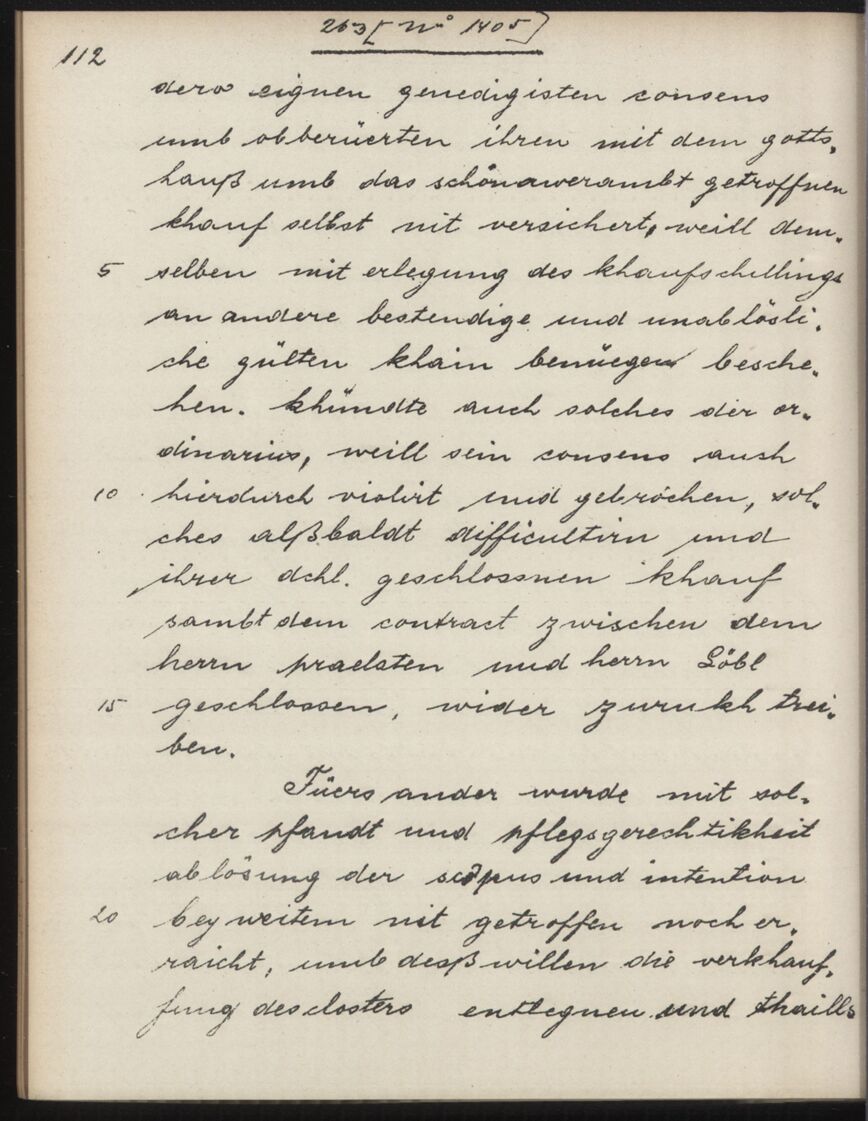 263 [ Nº 1405 ]
112
dero eignen genedigisten consens
umb obberüerten ihren mit dem gotts„
hauß umb das schönawerambt getroffnen
khauf selbst nit versichert, weill dem„
5 selben mit erlegung des khaufschillings
an andere bestendige und unablösli„
che gülten khain benüegen besche„
hen. khündte auch solches der or„
dinarius, weill sein consens auch
10 hierdurch violirt und gebrochen, sol„
ches alßbaldt difficultirn und
ihrer dchl. geschlossnen khauf
sambt dem contract zwischen dem
herrn praelaten und herrn Löbl
15 geschlossen, wider zurukh trei„
ben.
Füers ander wurde mit sol„
cher pfandt und pflegsgerechtikheit
ablösung der scopus und intention
20 bey weitem nit getroffen noch er„
raicht, umb deßwillen die verkhauf„
fung des closters entlegnen und thaills